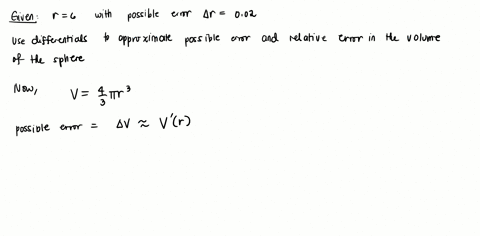 Given: r = 6 with possible error Δr = 0.02
Use differentials to approximate possible error and relative error in the volume
of the sphere
Now,
V = 4/3 πr³
possible error = ΔV ≈ V'(r)